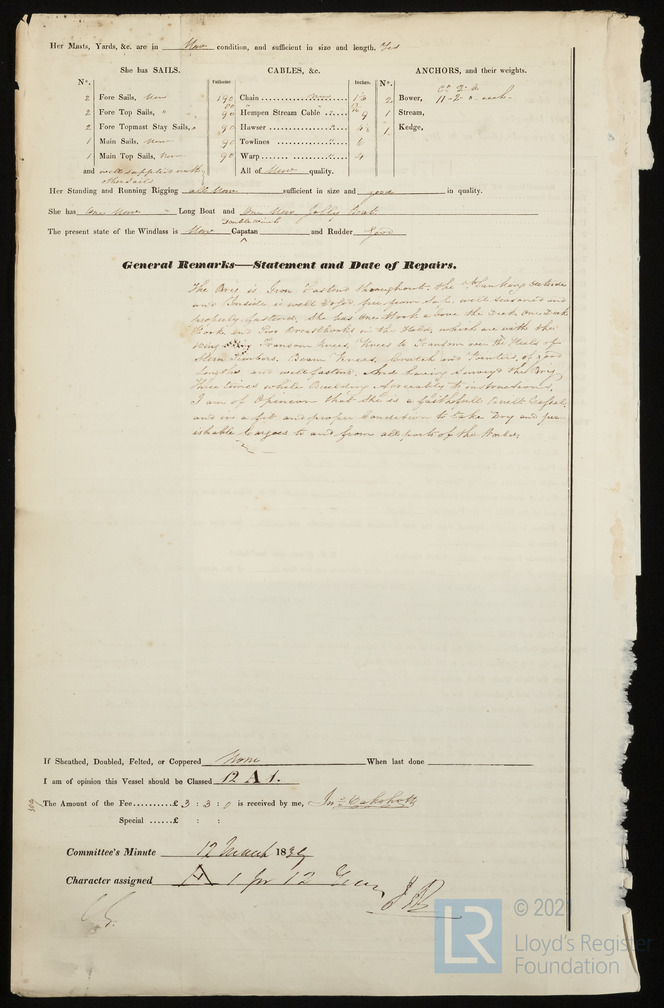 Her Masts, Yards, &c. are in New condition, and sufficient in size and length. Yes
She has SAILS.
CABLES, &c.
ANCHORS, and their weights.
No.
Fathoms
Inches.
No.
2 Fore Sails, New
190 Chain New
2 Bower, 11-2-0 each
2 Fore Top Sails, "
90 Hempen Stream Cable " 9
1 Stream,
2 Fore Topmast Stay Sails, "
90 Hawser
1 Kedge,
1 Main Sails, New
90 Towlines " 6
1 Main Top Sails, New
90 Warp " 4
and well supplied with other sails
All of New quality.
Her Standing and Running Rigging all New sufficient in size and good in quality.
She has One New Long Boat and One New Jolly Boat
The present state of the Windlass is New Capstan and Rudder Good
General Remarks—Statement and Date of Repairs.
The Brig is Iron Fastend throughout. the Planking outside
and Inside is well free from Sap, well seasoned and
properly fastend. She has one Hook above the Deck One Deck
Hook and Five Breasthooks in the Hold, which are with the
Wing Transom Knees, Knees to Transom over the Heels of
Stern Timbers. Beam Knees, Crutch and Pointers, of good
Lengths and well fastend. And having Surveyd the Brig
Three times while Building Agreeably to instructions,
I am of Opinion that She is a faithfull Built Vessel,
and in a fit and proper Condition to take Dry and per
ishable Cargoes to and from all parts of the World.
If Sheathed, Doubled, Felted, or Coppered None When last done
I am of opinion this Vessel should be Classed 12 A 1.
The Amount of the Fee..........£ 3 : 3 : 0 is received by me,
Special ......£ : :
Committee's Minute 12 March 1839
Character assigned A 1 for 12 Years
LR
© 2021
Lloyd's Register
Foundation